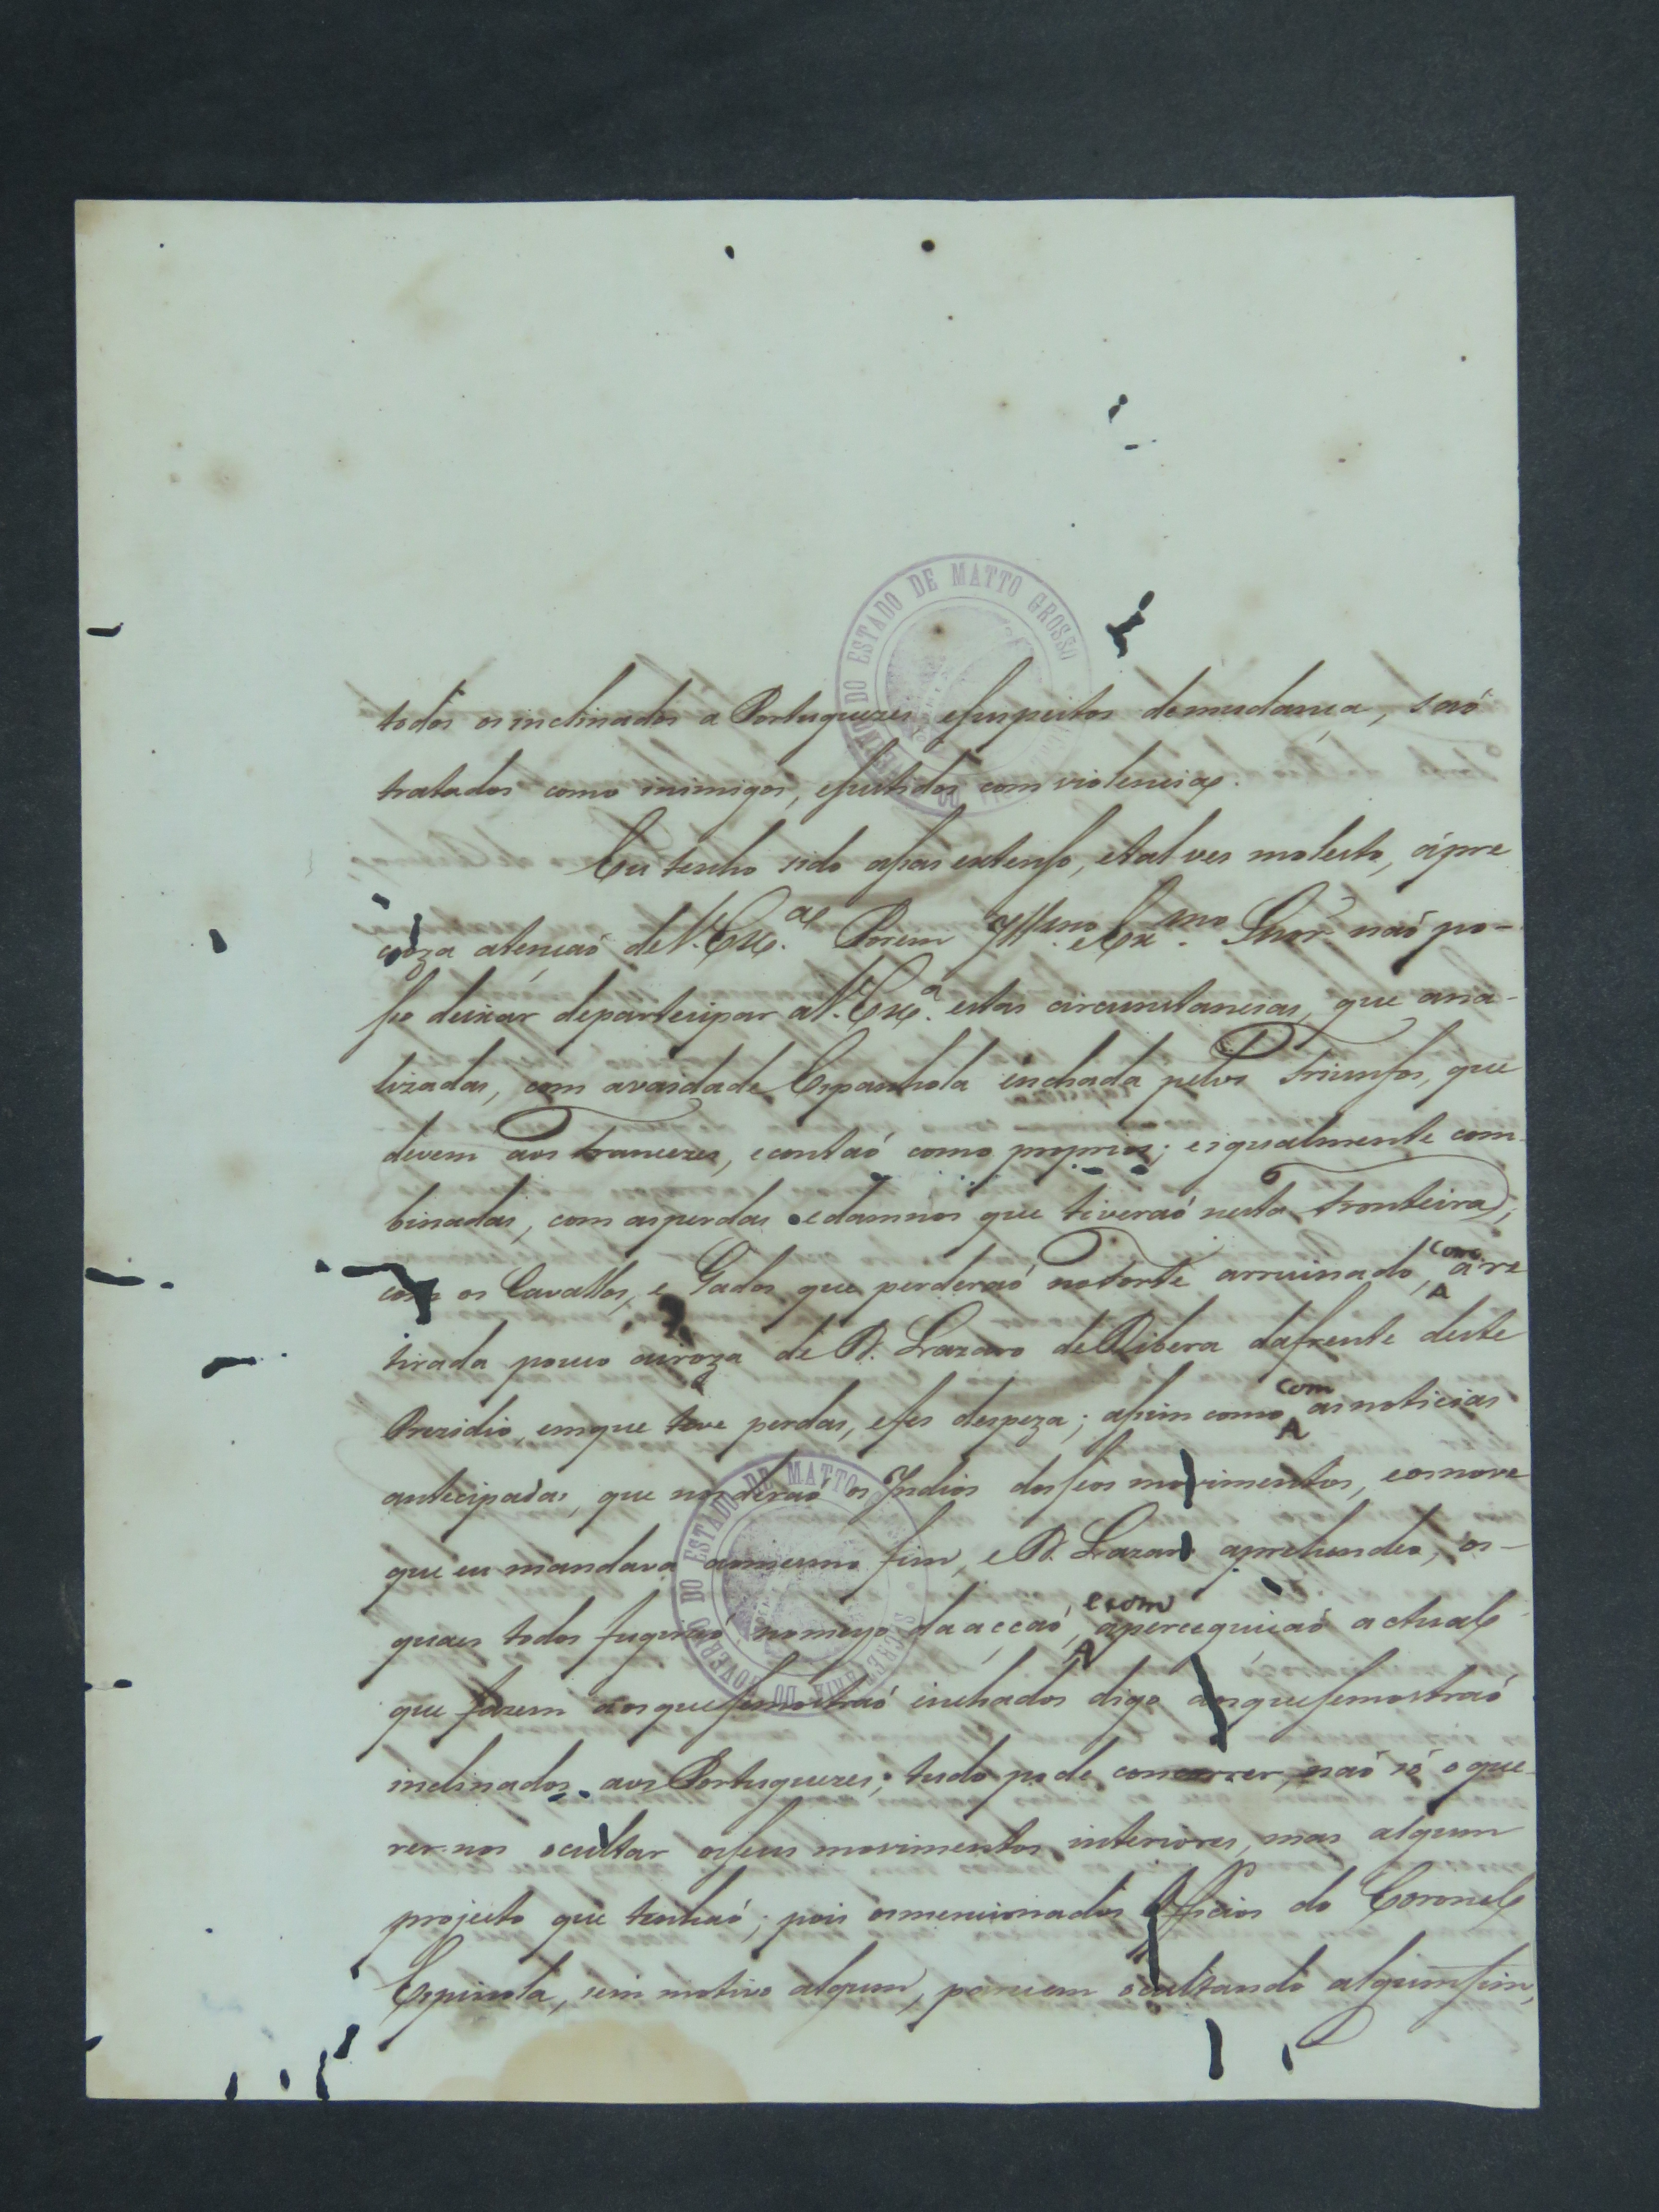 DO ESTADO DE MATTO GROSSO
todos os inclinados a Portuguezes esuspeitos demudança, saó
tratados como inimigos, epunidos com violencia.
Eu tenho sido assas extenso, etal ves molesto, ápre
cioza atençaó deV. Exc.ª Porem Ill.mo eEx.mo Snor. naó po-
sso deixár departecipar aV. Exc.ª estas circunstancias, que ana-
lizadas, com avaidade Espanhola inchada pelos Triunfos, que
devem aos Francezes, econtaó como proprios; eigualmente com
binadas, com asperdas edamnos que tiveraó nesta Fronteira,
com os Cavallos, e Gados que perderaó noForte arruinado, com a re
tirada pouco airoza de D. Lazaro deRibera dafrente deste
Prezidio, emque teve perdas, efes despeza; assim como com asnoticias
antecipadas, que nosderaó os Indios dosseos movimentos, eosnove
que eu mandava aomesmo fim, eD. Lazaro aprehendeo, os-
quaes todos fugiraó nomeyo daacçaó, ecom aperceguiçaó actual
que fazem aosquesemostraó inchados digo aosquesemostraó
inclinados aos Portuguezes; tudo pode concorrer, naó só oque-
rer-nos ocultar osseus movimentos interiores, mas algum
projecto que tenhaó; pois osmencionados Officios do Coronel
Espinola, sem motivo algum, parecem ocultando algumfim,
DO ESTADO DE MATTO
SECRETARIA DO GOVERNO